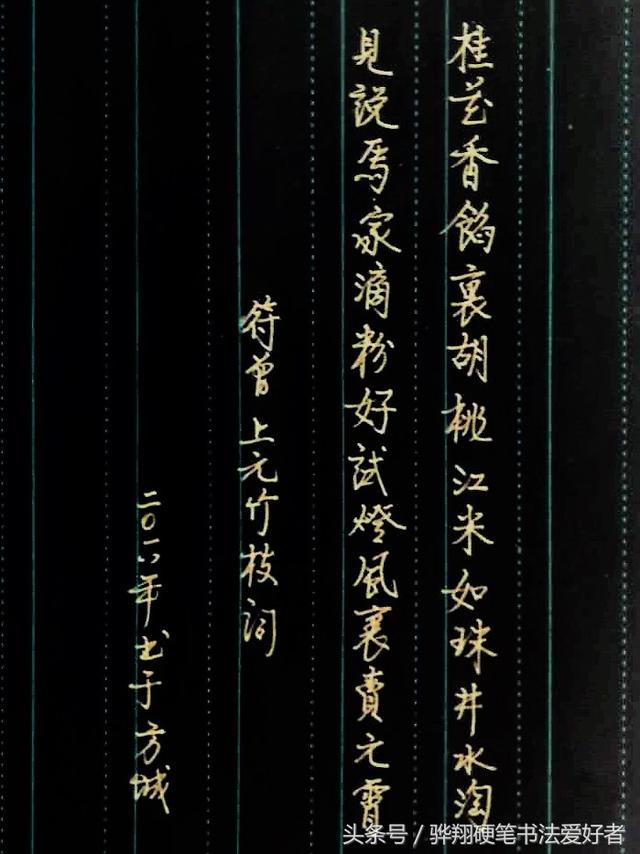 桂花香餡裹胡桃江米如珠井水淘
見說馬家滴粉好試燈風裏賣元宵
符曾上元竹枝词
二〇一八年书于方城
头条号 / 骅翔硬笔书法爱好者